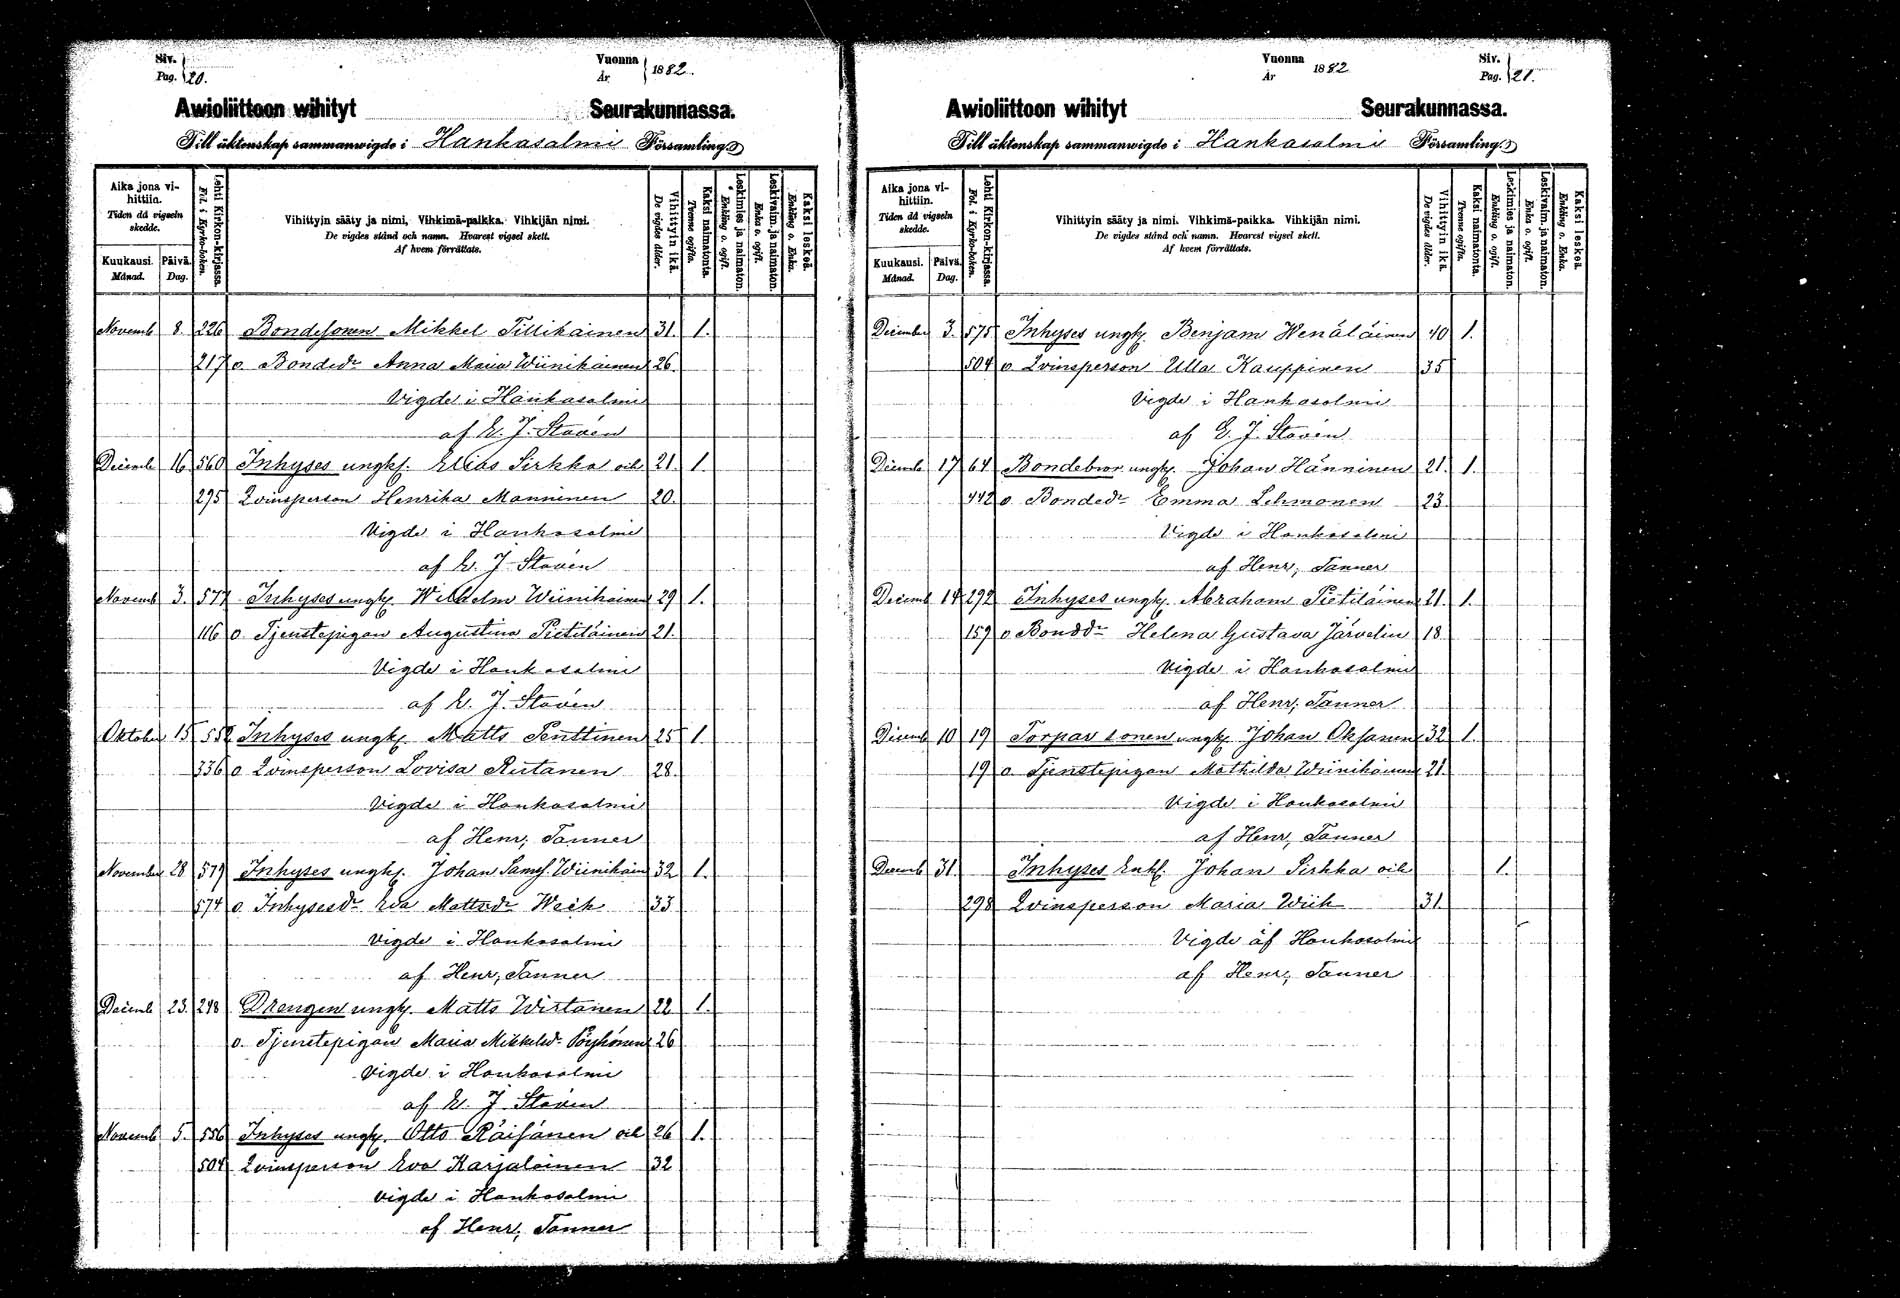 Siv.
Pag. 20.
Vuonna
År 1882.
Awioliittoon wihityt Seurakunnassa.
Till äktenskap sammanwigde i Hankasalmi Församling
Aika jona vihittiin.
Tiden då vigseln skedde.
Kuukausi. Månad.
Päivä. Dag.
Lehti Kirkon-kirjassa.
Fol. i Kyrko-boken.
Vihittyin sääty ja nimi. Vihkimä-paikka. Vihkijän nimi.
De vigdes stånd och namn. Hvarest vigsel skett.
Af hvem förrättats.
Vihittyin ikä.
De vigdes ålder.
Kaksi naimatonta.
Tvenne ogifta.
Leskimies ja naimaton.
Enkling o. ogift.
Leskivaim. ja naimaton.
Enka o. ogift.
Kaksi leskeä.
Enkling o. Enka.
Novemb 8. 226 Bondesonen Mikkel Tillikainen 31. 1.
217 o. Bondedr Anna Maria Wiinikainen 26.
Vigde i Hankasalmi
af E. J. Stavén
Decemb 16 560 Inhyses ungk. Elias Sirkka och 21. 1.
295 Qvinsperson Henrika Manninen 20.
Vigde i Hankasalmi
af E. J. Stavén
Novemb 3. 577 Inhyses ungk. Wilhelm Wiinikainen 29 1.
116 o. Tjenstepigan Augustina Pietiläinen 21.
Vigde i Hankasalmi
af E. J. Stavén
Oktober 15 552 Inhyses ungk. Matts Penttinen 25 1.
336 o Qvinsperson Lovisa Rutanen 28.
Vigde i Hankasalmi
af Henr; Tanner
November 28 579 Inhyses ungk. Johan Wiinikain 32 1.
574 o. Inhysesdr Eva Mattsdr 33
Vigde i Hankasalmi
af Henr; Tanner
Decemb 23. 248 Drengen ungk. Matts Wirtanen 22 1.
o. Tjenstepigan Maria Mikkelsdr Pöyhönen 26
Vigde i Hankasalmi
af E. J. Stavén
Novemb 5. 556 Inhyses ungk. Otto Räisänen och 26 1.
504 Qvinsperson Eva Karjalainen 32
Vigde i Hankasalmi
af Henr; Tanner
Vuonna
År 1882
Siv.
Pag. 21.
Awioliittoon wihityt Seurakunnassa.
Till äktenskap sammanwigde i Hankasalmi Församling
Aika jona vihittiin.
Tiden då vigseln skedde.
Kuukausi. Månad.
Päivä. Dag.
Lehti Kirkon-kirjassa.
Fol. i Kyrko-boken.
Vihittyin sääty ja nimi. Vihkimä-paikka. Vihkijän nimi.
De vigdes stånd och namn. Hvarest vigsel skett.
Af hvem förrättats.
Vihittyin ikä.
De vigdes ålder.
Kaksi naimatonta.
Tvenne ogifta.
Leskimies ja naimaton.
Enkling o. ogift.
Leskivaim. ja naimaton.
Enka o. ogift.
Kaksi leskeä.
Enkling o. Enka.
December 3. 575 Inhyses ungk. Benjam Wenäläinen 40 1.
504 o Qvinsperson Ulla Kauppinen 35
Vigde i Hankasalmi
af E. J. Stavén
Decemb 17 64 Bondebror ungk. Johan Hänninen 21. 1.
442 o Bondedr Emma Lehmonen 23.
Vigde i Hankasalmi
af Henr; Tanner
Decemb 14 292 Inhyses ungk. Abraham Pietiläinen 21. 1.
159 o Bonddr Helena Gustava Järvelin 18
Vigde i Hankasalmi
af Henr; Tanner
Decemb 10 19 Torparsonen ungk. Johan Oksanen 32 1.
19 o. Tjenstepigan Mathilda Wiinikainen 21.
Vigde i Hankasalmi
af Henr; Tanner
Decemb 31. Inhyses Enkl. Johan Sirkka och 1.
298 Qvinsperson Maria Wiik 31
Vigde af Hankasalmi
af Henr; Tanner